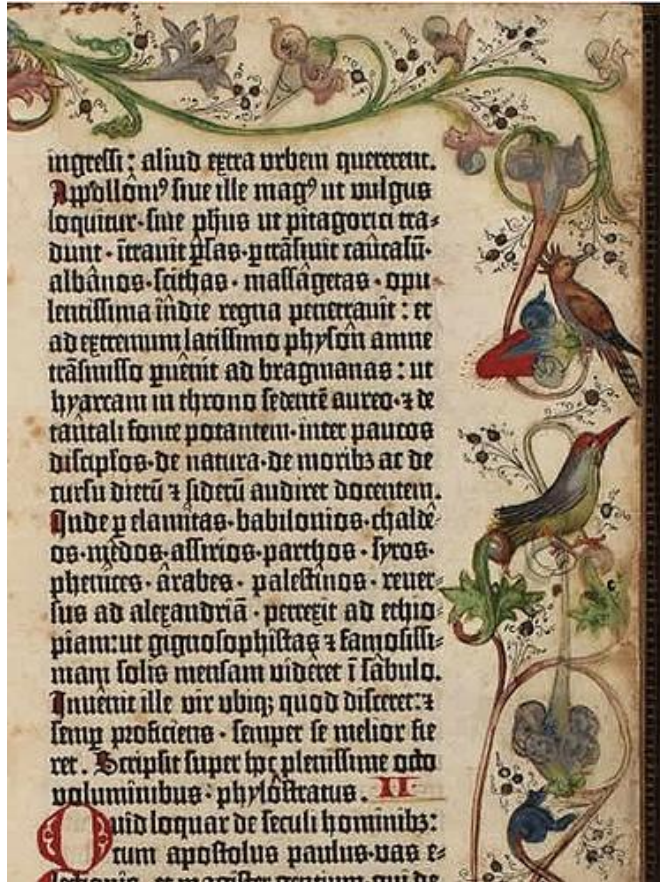 ingressi : aliud extra urbem quererent.
Appolloni⁹ siue ille mag⁹ ut uulgus
loquitur·siue phūs ut pitagorici tra⸗
dunt · ītrauit ꝑsas·ꝑtrāsiuit caūcasū·
albânos·scithas · massâgetas · opu
lentissima îndie regna penetrauit : et
ad extremum latissimo physôn amne
trāsmisso ꝑuênit ad bragmanas : ut
hyarcam in throno sedentē aureo·⁊ de
tantali fonte potantem·inter paucos
discipłos·de natura·de moribꝫ ac de
cursu dierū ⁊ siderū audiret docentem.
Inde ꝑ elamitas·babilonios·chaldê⸗
os·mêdos·assirios·parthos · syros·
phenices · ârabes · palestinos · reuer⸗
sus ad alexandriā · perrexit ad ethio⸗
piam:ut gignosophistas ⁊ famosissi⸗
mam solis mensam vidêret ī sâbulo.
Inuênit ille vir vbiqꝫ quod disceret:⁊
semꝑ proficiens · semper se melior fie
ret. Scripsit super hoc plenissime octo
voluminibus · phylôstratus . II
Quid loquar de seculi hominibꝫ:
cum apostolus paulus·vas e⸗
lectionis· et magister gentium·qui de